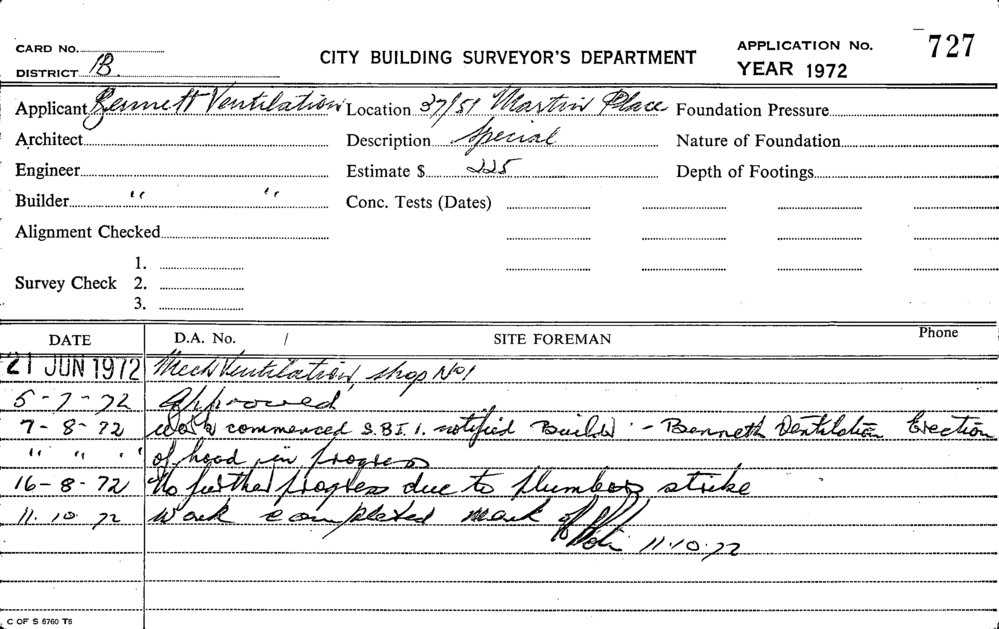 CARD No.
CITY BUILDING SURVEYOR'S DEPARTMENT
APPLICATION No. 727
DISTRICT B.
YEAR 1972
Applicant Bennett Ventilation Location 37/51 Martin Place Foundation Pressure
Architect Description Special Nature of Foundation
Engineer Estimate $ 225 Depth of Footings
Builder " " Conc. Tests (Dates)
Alignment Checked
1.
Survey Check 2.
3.
DATE D.A. No. / SITE FOREMAN Phone
21 JUN 1972 Mech Ventilation, shop No 1
5-7-72 Approved
7-8-72 work commenced S.B.I. notified Builder - Benneth Ventilation Erection
" " " of hood in progress
16-8-72 No further progress due to plumbers strike
11.10.72 Work completed mark off 11.10.72
C OF S 6760 T6